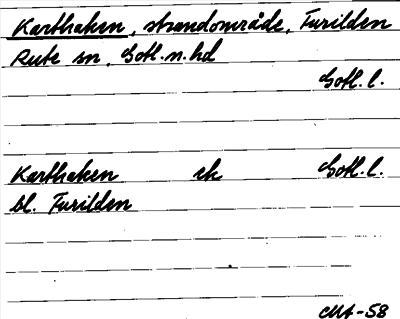 Karthaken, strandområde, Furilden
Rute sn, Gotl.n.hd
Gotl.l.
Karthaken ek Gotl.l.
bl. Furilden
CMA-58